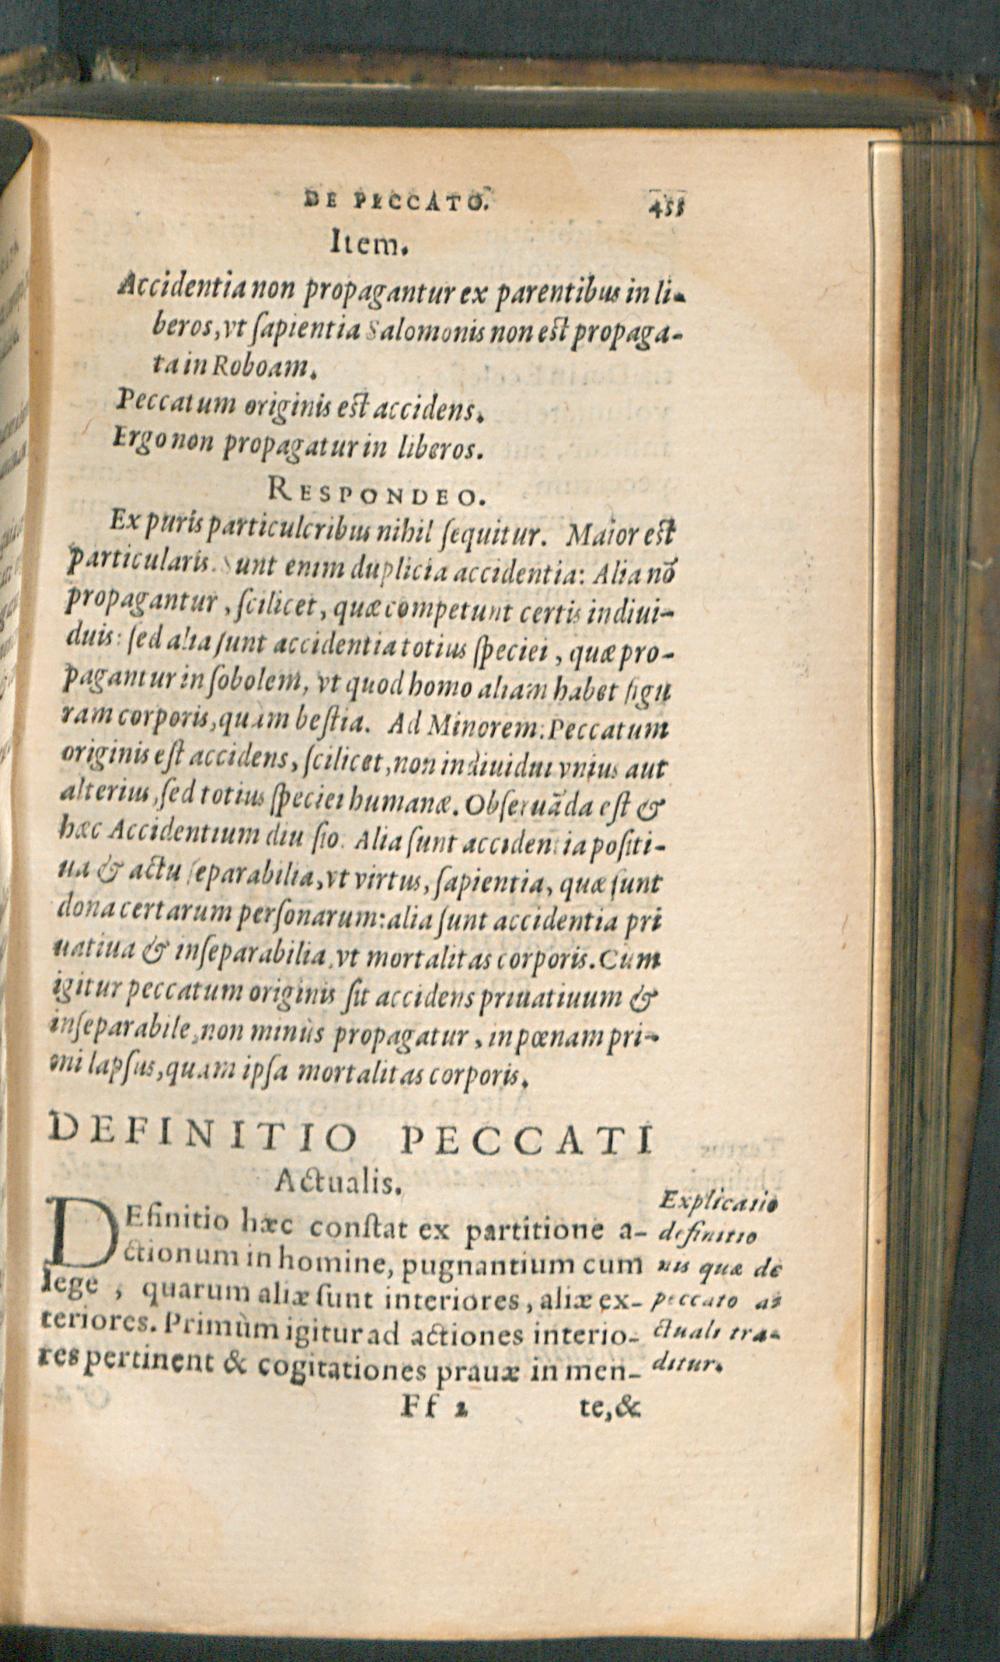 DE PECCATO. 455
Item.
Accidentia non propagantur ex parentibus in li-
beros, vt ſapientia Salomonis non est propaga-
ta in Roboam.
Peccatum originis est accidens.
Ergo non propagatur in liberos.
RESPONDEO.
Ex puris particularibus nihil ſequitur. Maior est
particularis. Sunt enim duplicia accidentia: Alia nō
propagantur, ſcilicet, quæ competunt certis indiui-
duis: ſed alia ſunt accidentia totius ſpeciei, quæ pro-
pagantur in ſobolem, vt quod homo aliam habet figu
ram corporis, quàm beſtia. Ad Minorem: Peccatum
originis eſt accidens, ſcilicet, non indiuidui vnius aut
alterius, ſed totius ſpeciei humanæ. Obſeruāda eſt &
hæc Accidentium diuiſio. Alia ſunt accidentia poſiti-
ua & actu ſeparabilia, vt virtus, ſapientia, quæ ſunt
dona certarum perſonarum: alia ſunt accidentia pri
uatiua & inſeparabilia, vt mortalitas corporis. Cùm
igitur peccatum originis ſit accidens priuatiuum &
inſeparabile, non minùs propagatur, in pœnam pri-
mi lapſus, quàm ipſa mortalitas corporis.
DEFINITIO PECCATI
Actualis.
DEfinitio hæc conſtat ex partitione a-
ctionum in homine, pugnantium cum
lege, quarum aliæ ſunt interiores, aliæ ex-
teriores. Primùm igitur ad actiones interio-
res pertinent & cogitationes prauæ in men-
Explicatio
definitio
nis quæ de
peccato a-
ctuali tra-
ditur.
Ff 2 te, &